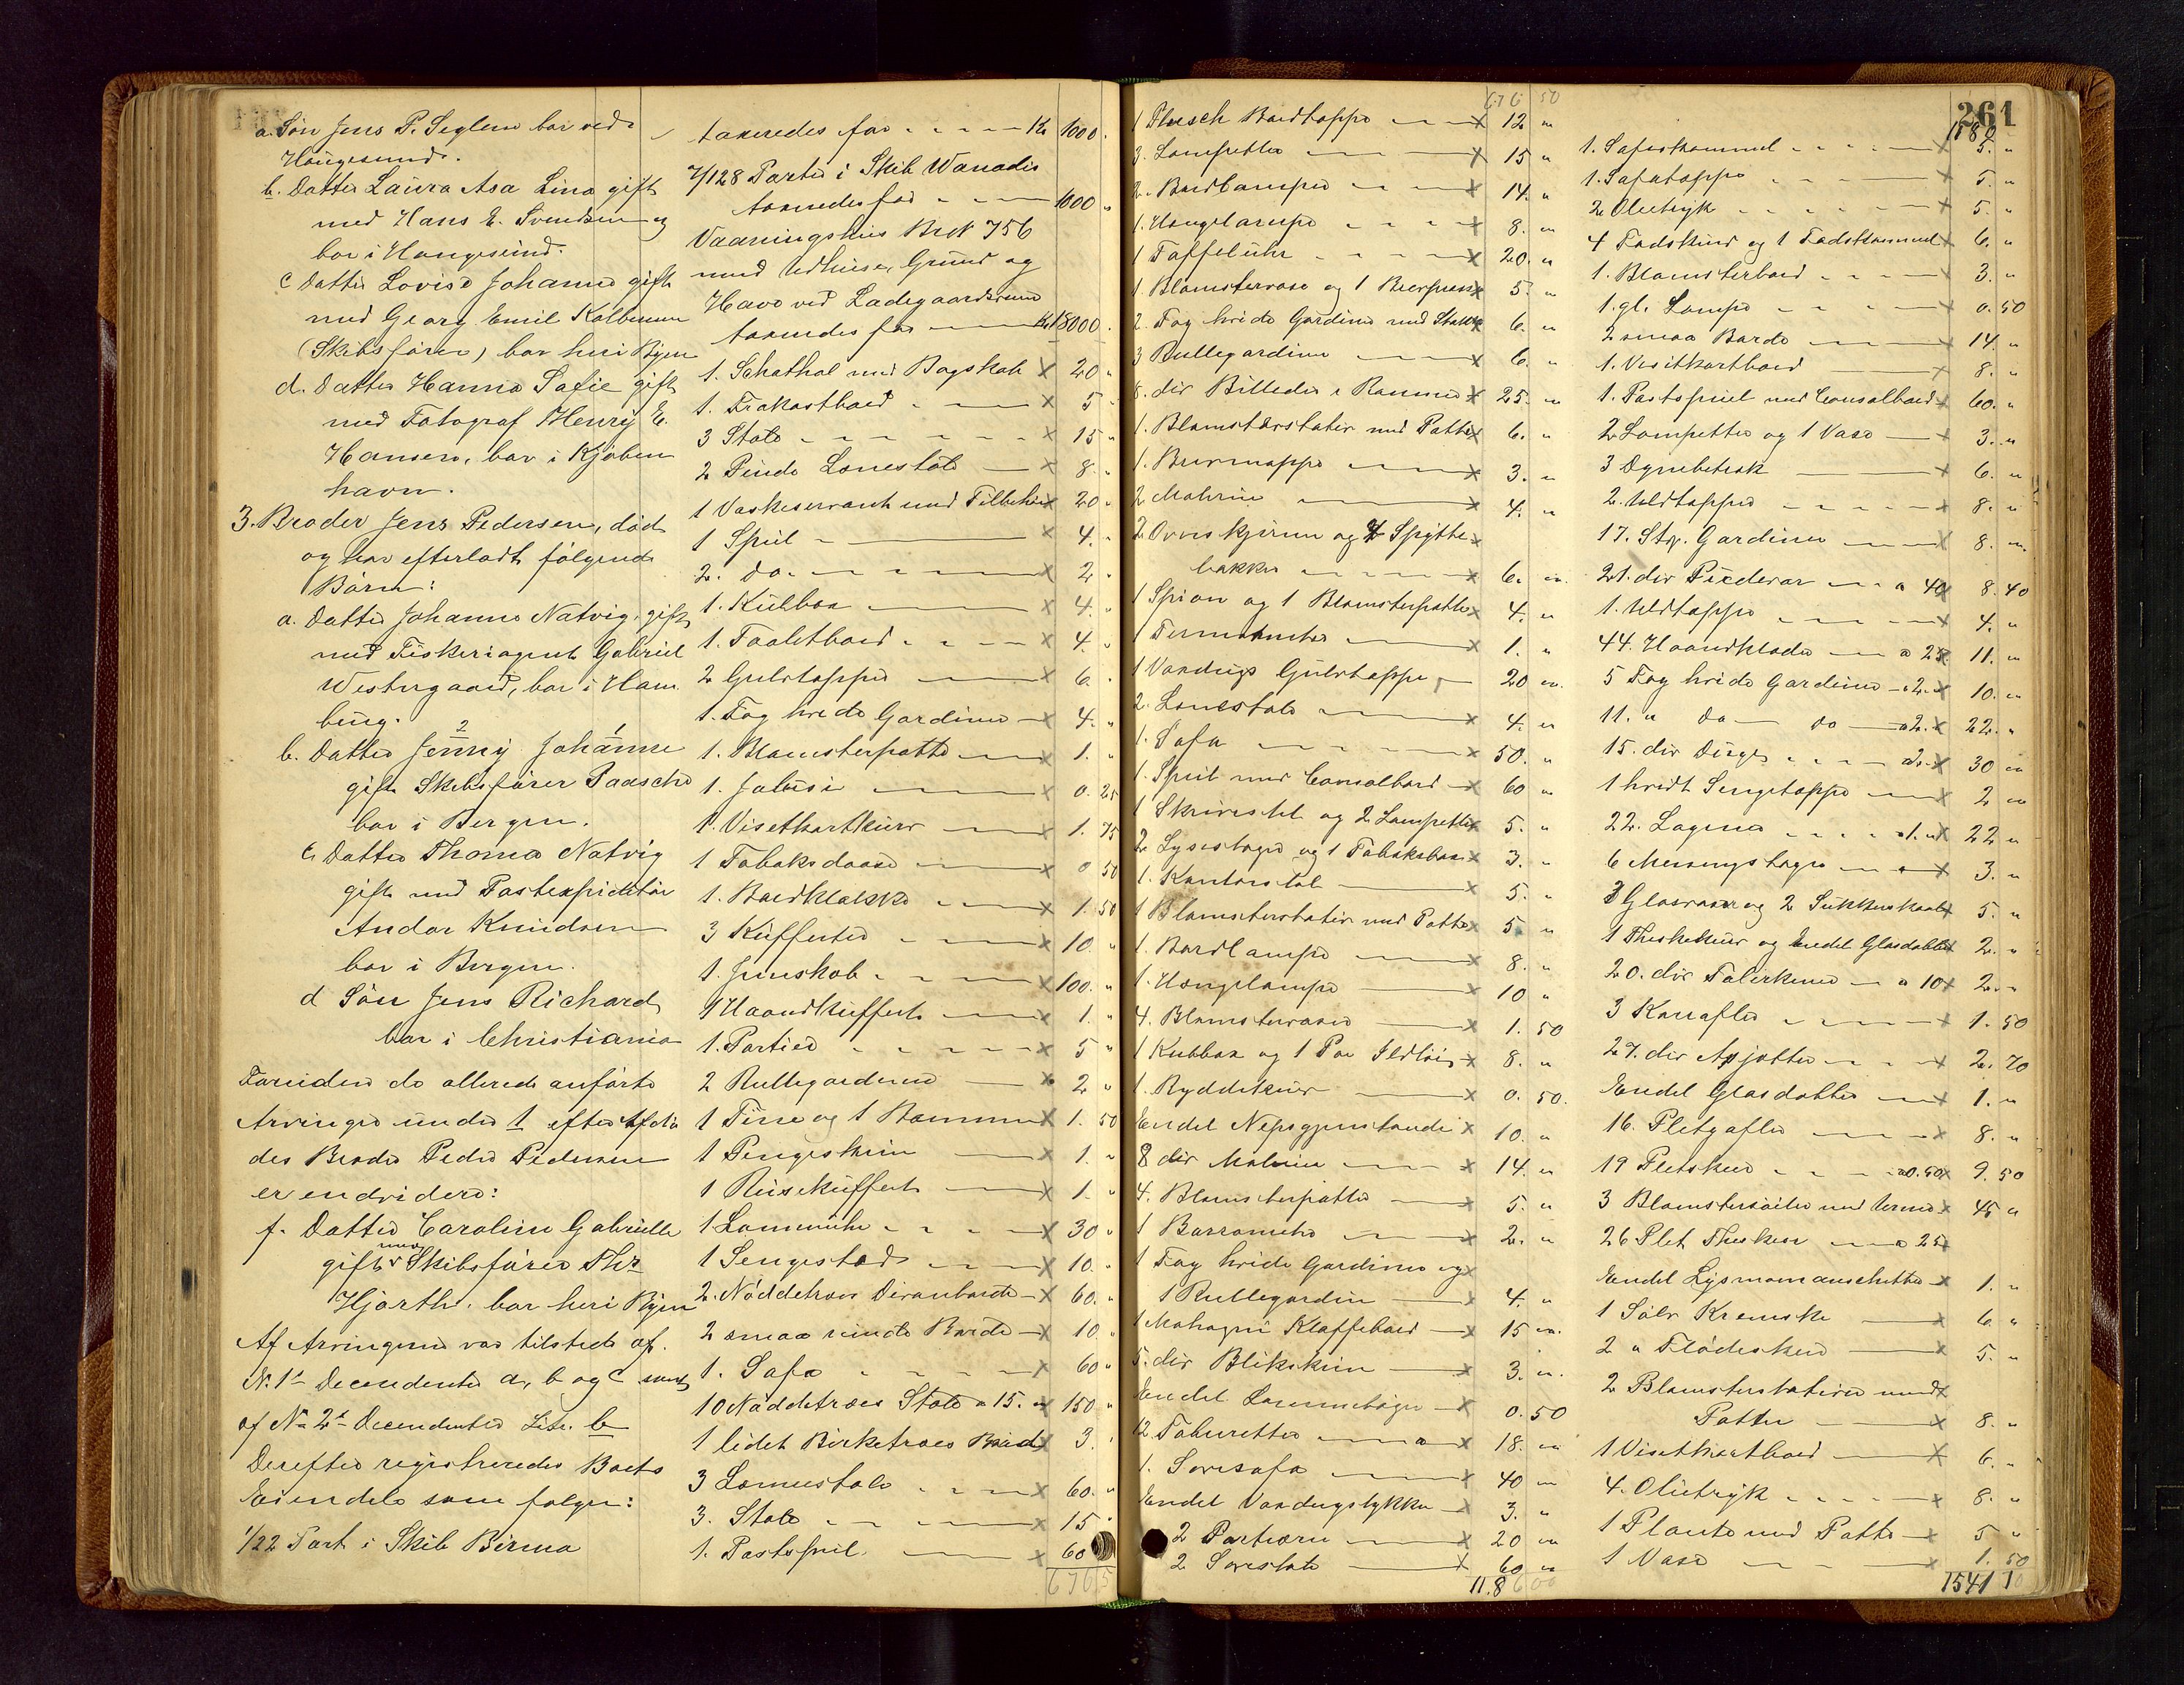 a. Søn Jens P. Seglem bor ved
Haugesund.
b. Datter Laura Asa Lina gift
med Hans E. Svendsen og
bor i Haugesund.
c Datter Lovise Johanne gift
med Georg Emil Kolbensen
(Skibsfører) bor heri Byen
d. Datter Hanna Sofie gift
med Fotograf Henry E.
Hansen, bor i Kjøben
havn.
3. Broder Jens Pedersen, død
og har efterladt følgende
Børn:
a. Datter Johanne Natvig, gift
med Fiskeriagent Gabriel
Westergaard, bor i Ham
burg.
2 1
b. Datter Jenny Johanne
gift Skibsfører Paasche
bor i Bergen.
c. Datter Thoma Natvig
gift med Postexpeditør
Andor Knudsen
bor i Bergen.
d Søn Jens Richard
bor i Christiania
Foruden de allerede anførte
Arvinger under 1 efter Afdø
des Broder Peder Pedersen
er endvidere:
f. Datter Caroline Gabrielle
gift med Skibsfører Thr.
Hjorth. bor heri Byen
Af Arvingerne var tilstede af
No. 1s Decendenter a, b og c samt
af No 2s Decendenter Litr. b
Derefter registreredes Boets
Eiendele som følger:
1/22 Part i Skib Birma
taxeredes for Kr 1000.
7/128 Parter i Skib Wanadis
taxeredes for 1000 "
Vaaningshus Br.N 756
med Udhuse, Grund og
Have ved Ladegaardsveien
taxeredes for Kr 18000.
1. Schathol med Bogskab x 20 "
1. Frokostbord x 5 "
3 Stole x 15 "
2 Pinde Lænestole x 8. "
1 Vaskeservant med Tilbehør x 20 "
1 Speil x 4. "
2. do. x 2 "
1. Kulbox x 4. "
1. Toaletbord x 4. "
2 Gulvtepper x 6. "
1. Fag hvide Gardiner x 4. "
1. Blomsterpotte x 1. "
1. Jalusi x 0. 25
1. Visetkartkurv x 1. 75
1 Tobaksdaase x 0 50
1. Bordklokke x 1. 50
3 Kufferter x 10 "
1. Jernskab x 100. "
1 Haandkuffert x 1. "
1. Portier x 5 "
2 Rullegardiner x 2 "
1 Tine og 1 Bomme x 1. 50
1 Pengeskrin x 1. "
1 Reisekuffert x 1. "
1 Lommeuhr x 30 "
1 Sengested x 10. "
2. Nøddetræs Divanborde x 60. "
2 smaa runde Borde x 10. "
1. Sofa x 60 "
10 Nøddetræes Stole a 15. x 150 "
1 lidet Birketræes Bord x 3. "
3 Lænestole x 60. "
3. Stole x 15 "
1. Postspeil x 60
676 5
676 50
1 Plusch Bordteppe x 12 "
3. Lampetter x 15 "
2. Bordlamper x 14. "
1. Hængelampe x 8. "
1 Taffeluhr x 20. "
1. Blomstervase og 1 Brevpress x 5. "
2. Fag hvide Gardiner med Stokke 6. "
3 Rullegardiner x 6. "
8. div Billeder i Rammer x 25. "
1. Blomsterstativ med Potte x 6. "
1. Brevmappe x 3. "
2 Malerier x 4. "
2 Ovnskjerme og 4 Spytte x
bakker x 6. "
1 Spion og 1 Blomsterpotte x 4. "
1 Termometer x 1. "
1 Voxdugs Gulvteppe 20 "
2. Lænestole x 4. "
1. Sofa x 50. "
1. Speil med Consolbord x 60 "
1 Skrivestel og 2 Lampetter x 5. "
2 Lysestager og 1 Tobaksbox x 3. "
1. Kontorstol x 5. "
1 Blomsterstativ med Potte x 5. "
1. Bordlampe x 8. "
1. Hængelampe x 10 "
4. Blomstervaser x 1. 50
1 Kulbox og 1 Par Ildtøi x 8. "
1. Ryddekurv x 0. 50.
Endel Nipsgjenstande x 10. "
8 div Malerier x 14. "
4. Blomsterpotter x 5. "
1 Barrometer x 2. "
1 Fag hvide Gardiner og x
1 Rullegardin x 4. "
1 Mahogni Klaffebord x 15 "
5. div Blikskrin x 3. "
Endel Lommebøger x 0. 50
12 Taburetter a x 18. "
1. Sovesofa x 40 "
Endel Voxdugstykker x 3. "
2 Portierer x 20 "
2 Sovestole x 60 "
11.8
261
1182
1. Sofaskammel x 5. "
1. Sofateppe x 5. "
2 Olietryk x 5. "
4 Fodskind og 1 Fodskammel x 6. "
1. Blomsterbord x 3. "
1. gl. Lampe 0. 50
2 smaa Borde x 14. "
1. Visitkartbord x 8. "
1. Postspeil med Consolbord x 60. "
2 Lampetter og 1 Vase 3. "
3 Dynebetræk 6. "
2. Uldtepper x 8. "
17. Stk. Gardiner x 8. "
21. div Pudevar a 40 x 8. 40
1. Uldteppe x 4. "
44. Haandklæder a 25 x 11. "
5 Fag hvide Gardiner a 2. x 10. "
11. " do do a 2. x 22. "
15. div Duge a 2. x 30 "
1 hvidt Sengeteppe x 2 "
22. Lagener a 1. x 22 "
6 Messingstager x 3. "
3 Glasvaser og 2 Sukkerskaale x 5. "
1 Theskekurv og Endel Glasdotter x 2. "
20. div Talerkener a 10 x 2. "
3 Karafler x 1. 50
27. div Asjetter x 2. 70
Endel Glasdotter x 1. "
16. Pletgafler x 8. "
19 Pletskeer a 0.50 x 9. 50
3 Blomstersøiler med Urner x 45 "
26 Plet Theskeer a 25 x
Endel Lysmamanschetter x 1. "
1 Sølv Kremske 6. "
2 " Flødeskeer x 5. "
2 Blomsterstativer med x
Potter x 8. "
1 Visetkartbord x 6. "
4. Olietryk x 8. "
1 Plante med Potte x 5 "
1 Vase x 1. 50
1541 10